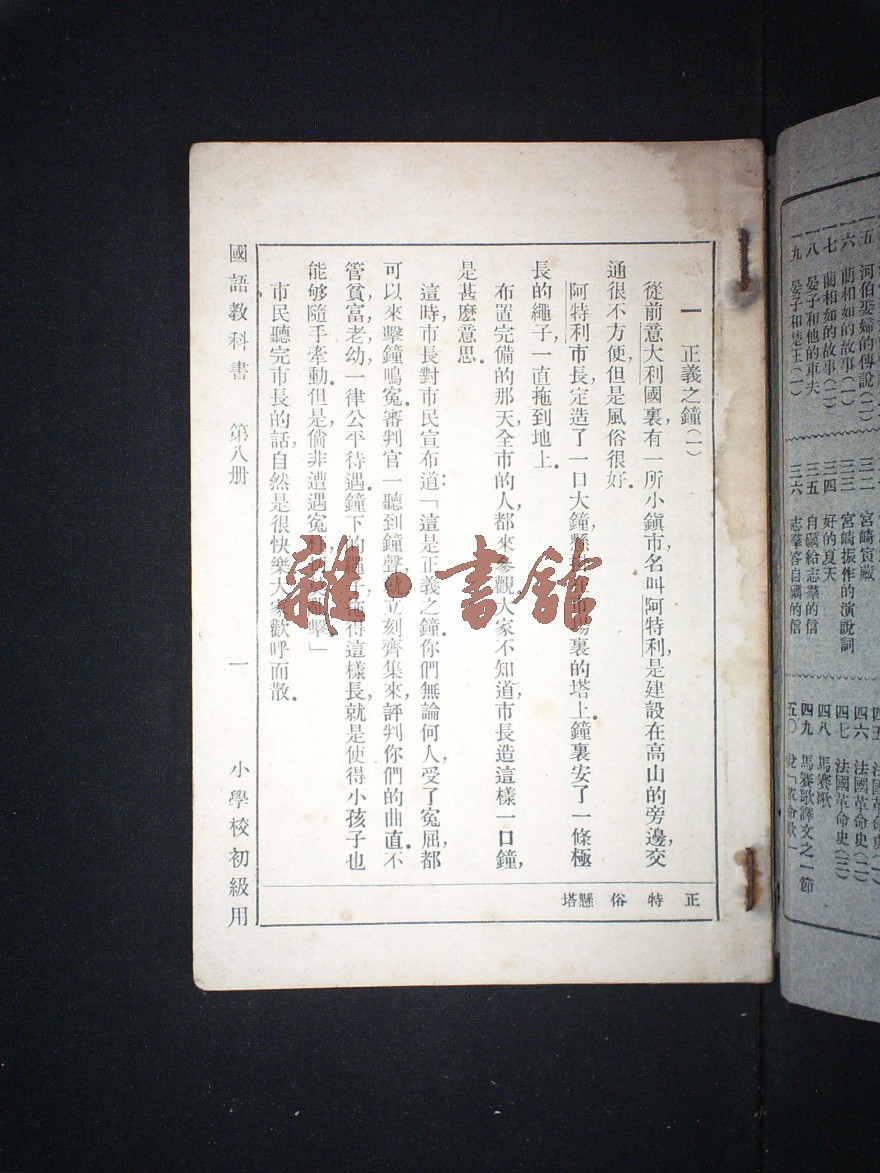 一　正義之鐘(一)
從前意大利國裏,有一所小鎮市,名叫阿特利,是建設在高山的旁邊,交
通很不方便,但是風俗很好.
阿特利市長,定造了一口大鐘,懸　裏的塔上.鐘裏安了一條極
長的繩子,一直拖到地上.
布置完備的那天,全市的人,都來參觀,大家不知道市長造這樣一口鐘,
是甚麼意思.
這時,市長對市民宣布道:「這是正義之鐘.你們無論何人,受了冤屈,都
可以來擊鐘鳴冤.審判官一聽到鐘聲,就立刻齊集來,評判你們的曲直.不
管貧,富,老,幼,一律公平待遇.鐘下的　得這樣長,就是使得小孩子也
能够隨手牽動.但是,倘非遭遇冤　擊.」
市民聽完市長的話,自然是很快樂,大家歡呼而散.
正　特　俗　懸塔
國語教科書　第八册　一　小學校初級用
雜·書館
五　河伯娶婦的傳說(二)
一六　藺相如的故事(一)
一七　藺相如的故事(二)
一八　晏子和他的車夫
一九　晏子和楚王(一)
三二　宮崎寅藏
三三　宮崎振作的演說詞
三四　好的夏天
三五　自礪給志羣的信
三六　志羣答自礪的信
四五　法國革命史(一)
四六　法國革命史(二)
四七　法國革命史(三)
四八　馬賽歌
四九　馬賽歌譯文之一節
五〇　說「革命歌」